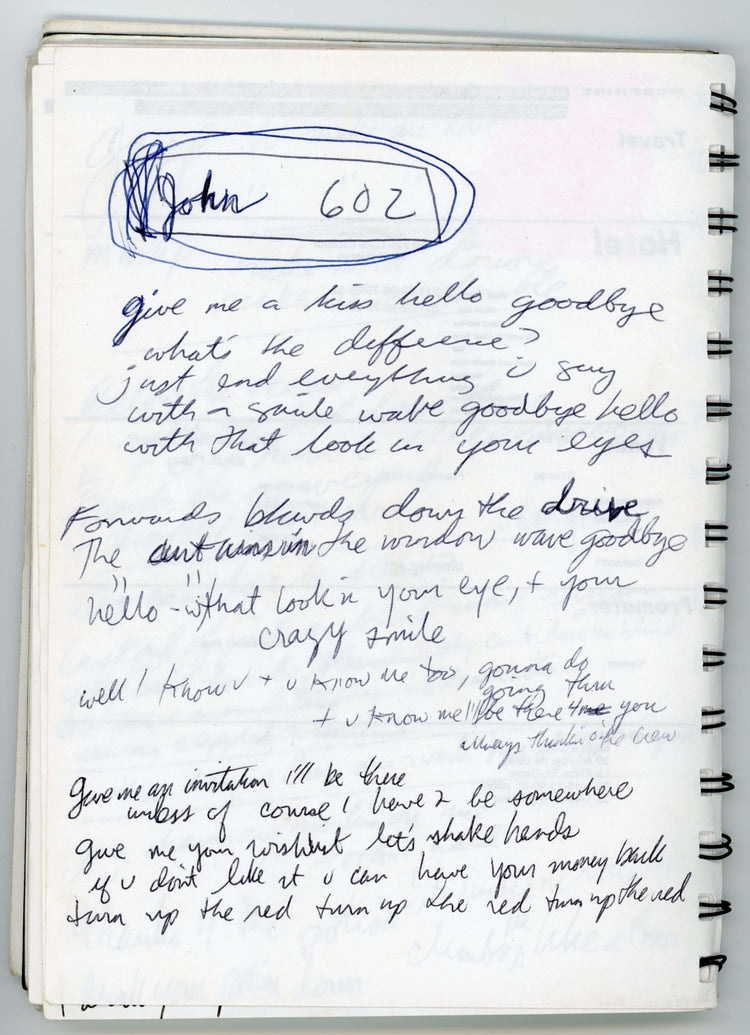 John 602
give me a kiss hello goodbye
what's the difference?
just end everything u say
with a smile wave goodbye hello
with that look in your eyes
Forwards down the drive
The curtains in the window wave goodbye
"hello - w/ that look in your eye, + your
crazy smile
well I know u + u know me too, gonna do
going thru
+ u know me I'll be there 4 you
always thinkin o' the
Give me an invitation i'll be there
unless of course I have 2 be somewhere
give me your wishlist let's shake hands
if u don't like it u can have your money back
turn up the red turn up the red turn up the red
MORPHINE
Travel
Hotel
Promoter